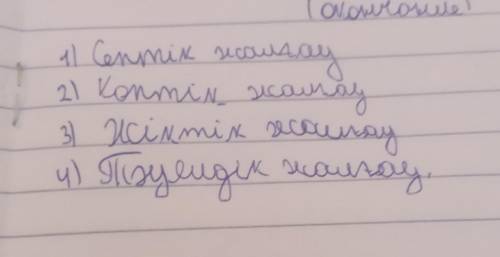 (окончание)
1) Септік жалғау
2) Көптік жалғау
3) Жіктік жалғау
4) Тәуелдік жалғау.